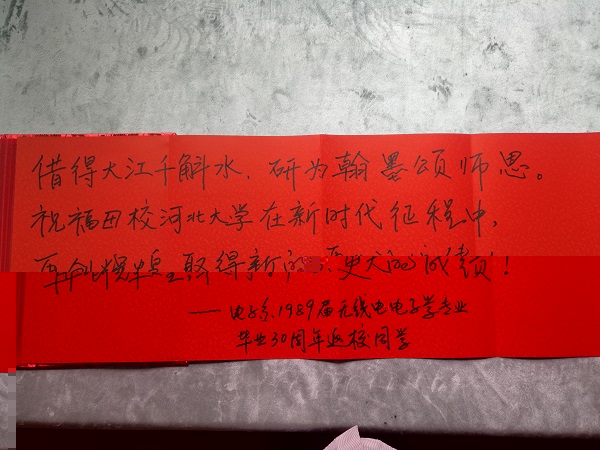 借得大江千斛水，研为翰墨颂师恩。
祝福母校河北大学在新时代征程中，
再创辉煌，取得新的更大的成绩！
——电子系1989届无线电电子学专业
毕业30周年返校同学